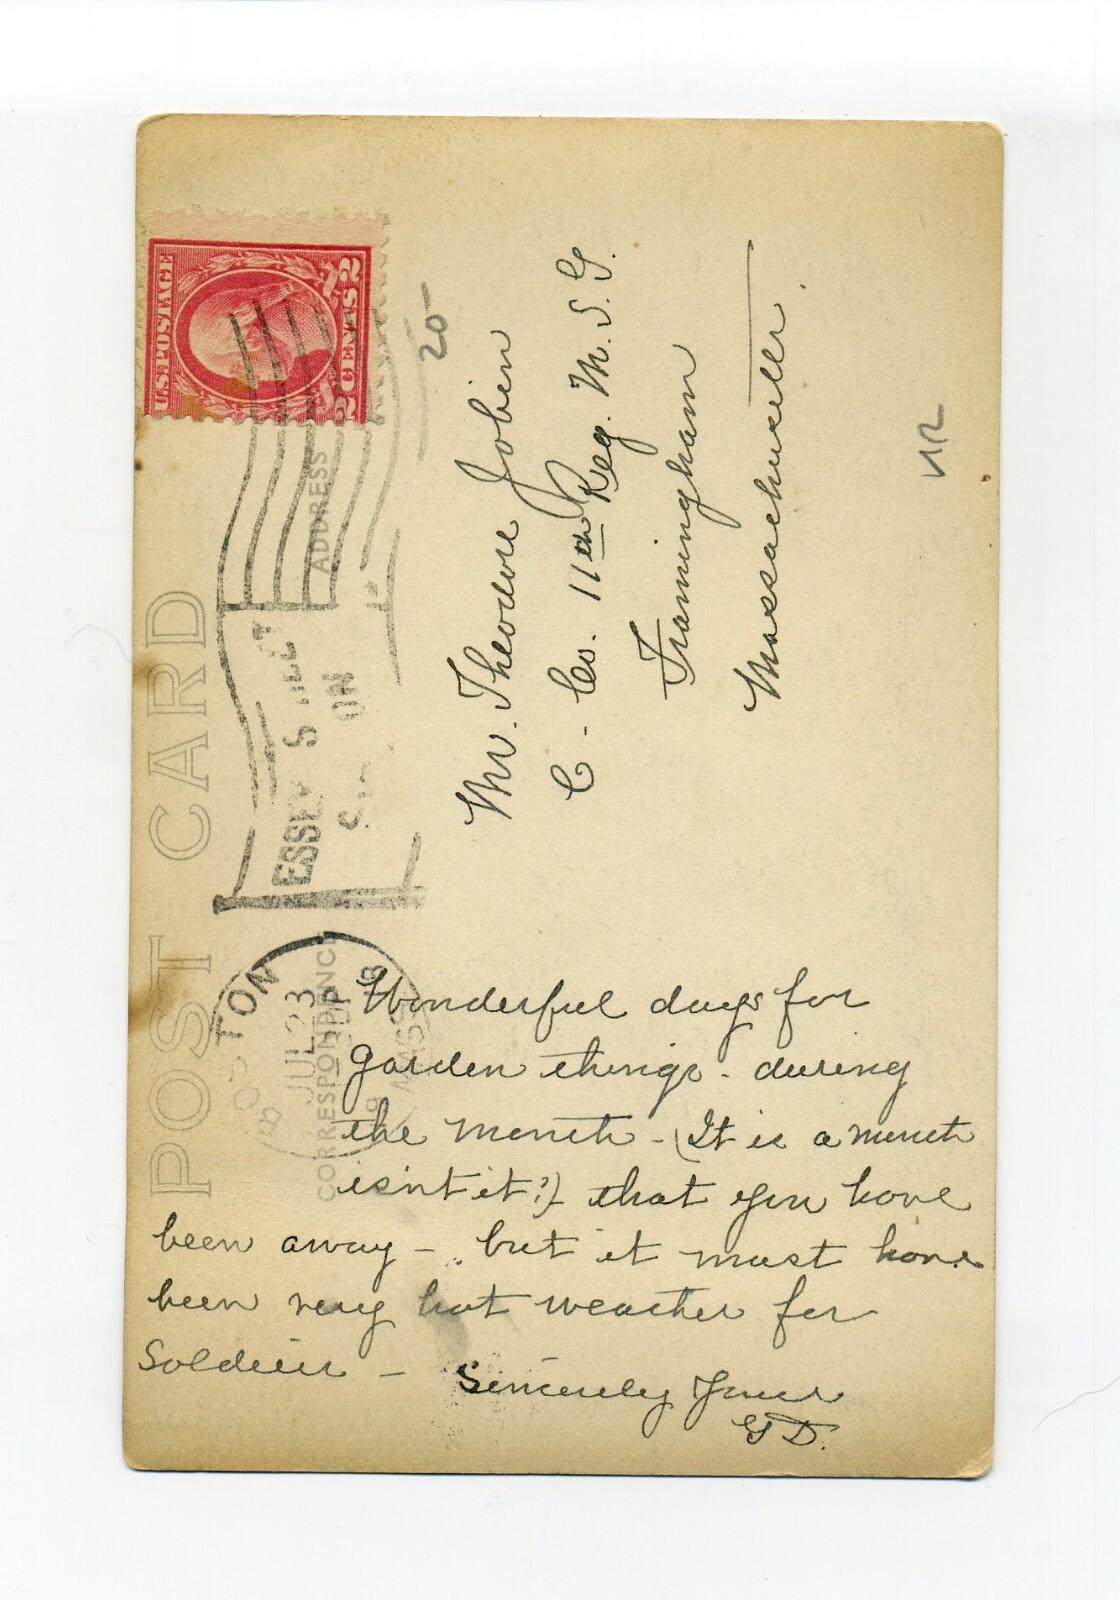 POST CARD
CORRESPONDENCE
ADDRESS
U.S. POSTAGE
2 CENTS 2
TON
JUL 23
MASS.
ESSEX
20-
Mr. Theodore Jobin
C - Co. 11th Reg. M. S. G.
Framingham
Massachusetts.
Wonderful days for
garden things - during
the month - (It is a month
isn't it?) - that you have
been away - but it must have
been very hot weather for
Soldiers -
Sincerely Yours
G D.